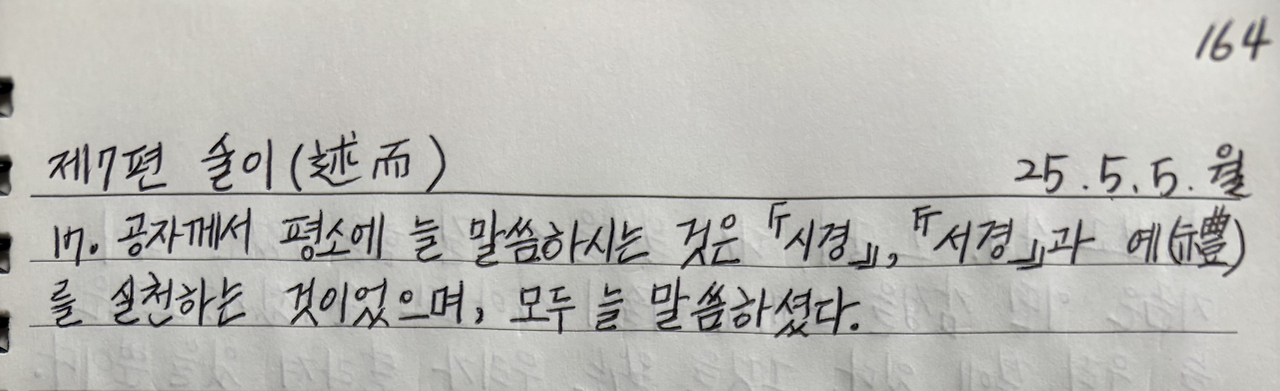 164
제7편 술이(述而) 25.5.5.월
17. 공자께서 평소에 늘 말씀하시는 것은 『시경』, 『서경』과 예(禮)
를 실천하는 것이었으며, 모두 늘 말씀하셨다.